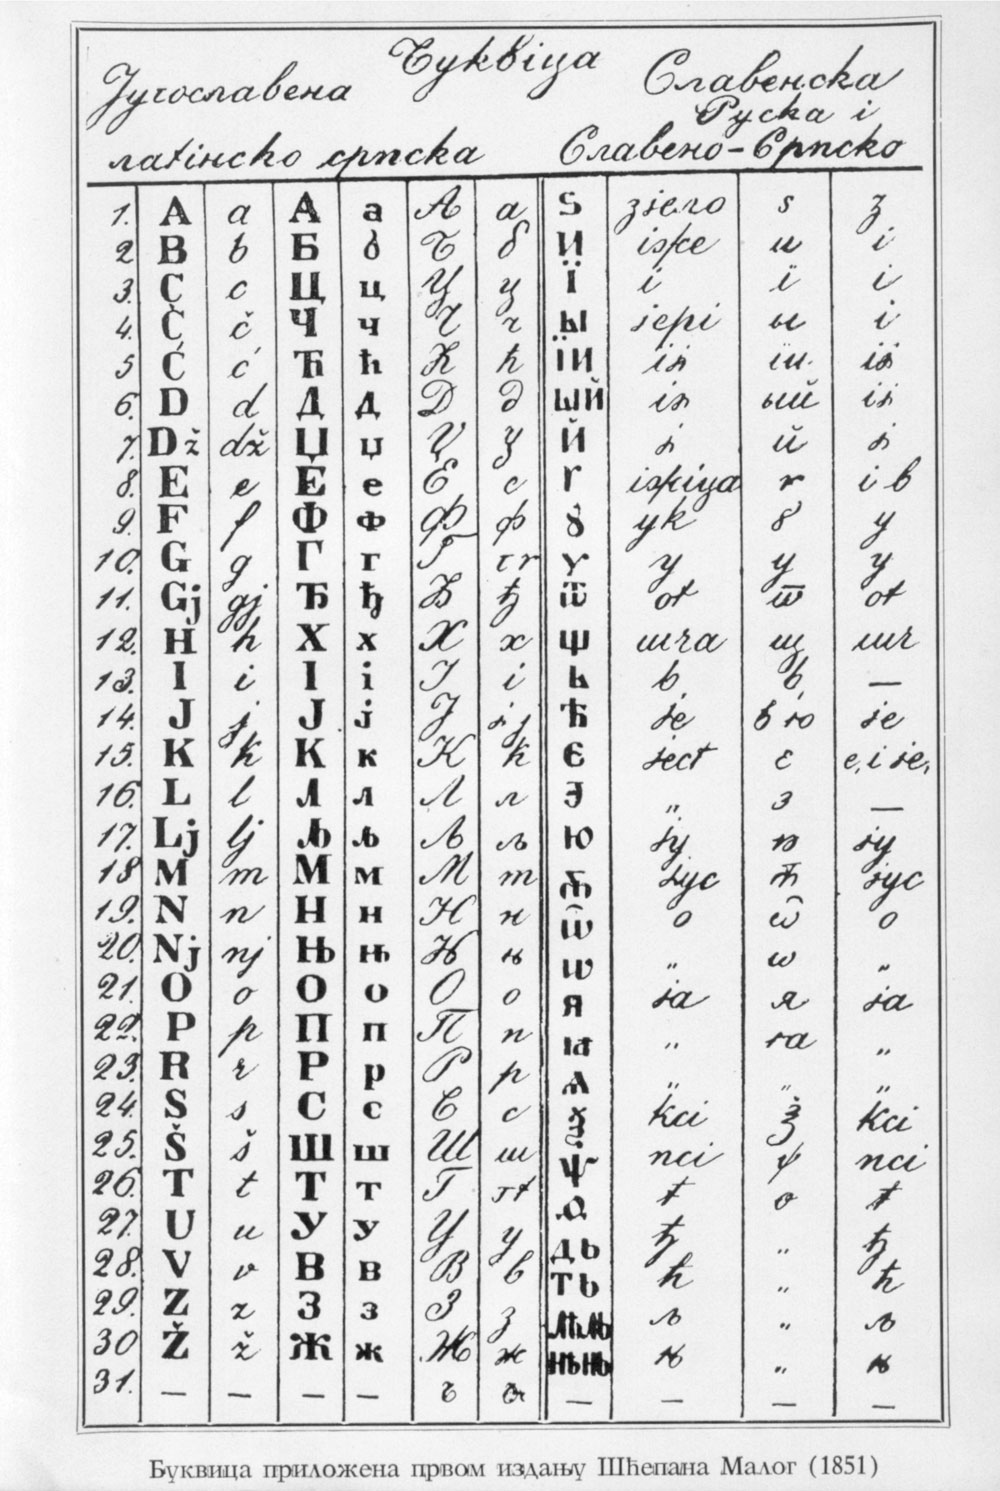 Буквіца
Југославена
Славенска
Руска і
латінско српска
Славено-Српско
1. A a А а А а Ѕ зјело ѕ з
2 B b Б б Б б И іже и і
3. C c Ц ц Ц ц Ї і ї і
4. Č č Ч ч Ч ч Ы јері ы і
5 Ć ć Ћ ћ Ћ ћ ЇИ іј їи іј
6. D d Д д Д д ЫЙ іј ый іј
7. Dž dž Џ џ Џ џ Й ј й ј
8. E e Е е Е е іжіца і в
9. F f Ф ф Ф ф ук у
10. G g Г г Г г у у у
11. Gj gj Ђ ђ Ђ ђ от от
12. H h Х х Х х шча щ шч
13. I i І і І і Ь —
14. J j Ј ј Ј ј је је
15. K k К к К к Є јест є е, і је,
16. L l Л л Л л „ —
17. Lj lj Љ љ Љ љ Ю ју ју
18 M m М м М м јус јус
19. N n Н н Н н о о
20. Nj nj Њ њ Њ њ „ „
21. O o О о О о Я ја я ја
22. P p П п П п „ „
23. R r Р р Р р Ѧ „ „ „
24. S s С с С с Ѯ ксі ѯ ксі
25. Š š Ш ш Ш ш Ѱ псі ѱ псі
26. T t Т т Т т
27. U u У у У у ДЬ ђ „ ђ
28. V v В в В в ТЬ ћ „ ћ
29. Z z З з З з љ „ љ
30 Ž ž Ж ж Ж ж њ „ њ
31. — — — — — — — —
Буквица приложена првом издању Шћепана Малог (1851)